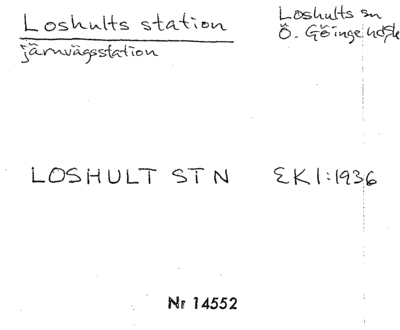 Loshults station
järnvägsstation
Loshults sn
Ö. Göinge hd
LOSHULT STN EK I:1936
Nr 14552